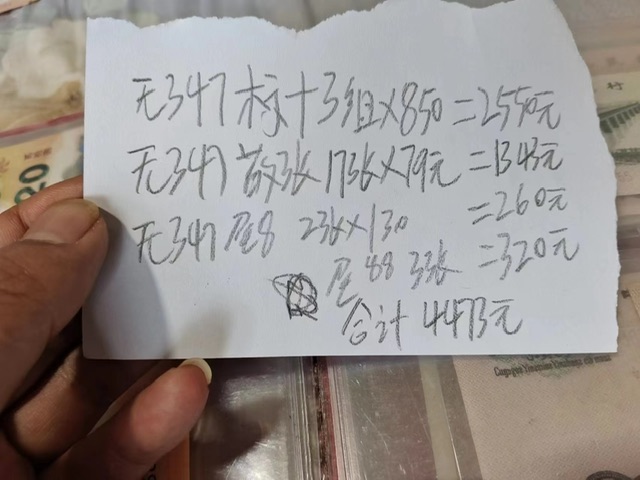 无347标十3组×850=2550元
无347散张17张×79元=1343元
无347尾8 2张×130 =260元
尾88 3张 =320元
合计4473元
20